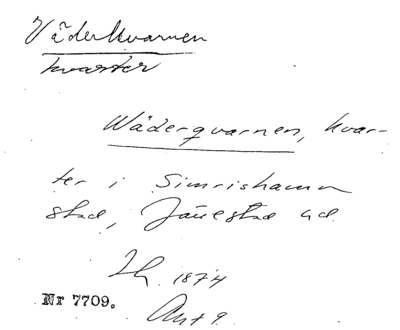 Väderkvarnen
kvarter
Wäderqvarnen, kvar-
ter i Simrishamn
stad, Järrestad hd.
1874
Nr 7709.